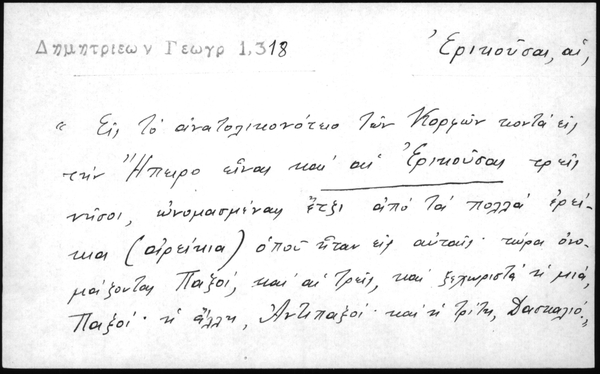 Δημητριεων Γεωγρ 1,318
Ἐρικοῦσαι, αἱ,
“ Εἰς τὸ ἀνατολικονότειο τῶν Κορφῶν κοντὰ εἰς
τὴν Ἤπειρο εἶναι καὶ αἱ Ἐρικοῦσαι τρεῖς
νῆσοι, ὠνομασμέναι ἔτζι ἀπὸ τὰ πολλὰ ἐρεί-
κια (αἰρείκια) ὁποῦ ἦταν εἰς αὐταῖς· τώρα ὀνο-
μάζονται Παξοί, καὶ αἱ τρεῖς, καὶ ξεχωριστὰ ἡ μιά,
Παξοί· ἡ ἄλλη, Ἀντιπαξοί· καὶ ἡ τρίτη, Δασκαλιό„